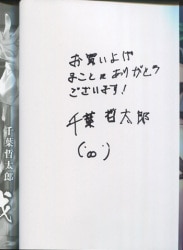 お買いよげ
まことにありがとう
ございます！
千葉哲太郎
(¨ω¨)
千葉哲太郎